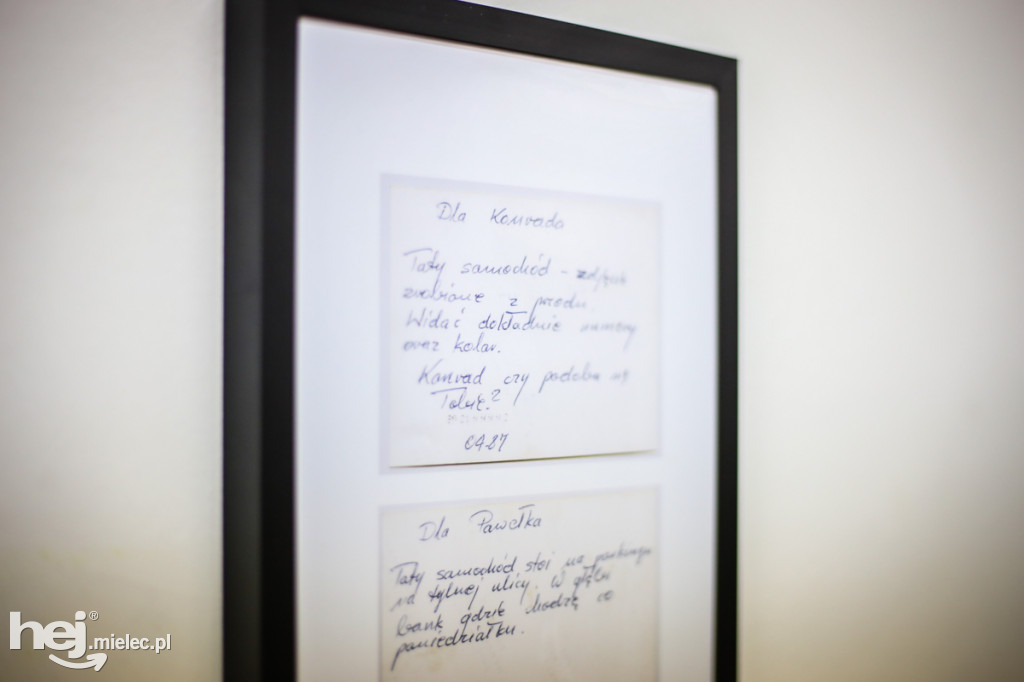 Dla Konrada
Taty samochód - zdjęcie
zrobione z przodu.
Widać dokładnie numery
oraz kolor.
Konrad czy podoba się
Tobie?
04.87
Dla Pawełka
Taty samochód stoi na parkingu
na tylnej ulicy. W głębi
bank gdzie chodzę co
poniedziałku.
hej.mielec.pl